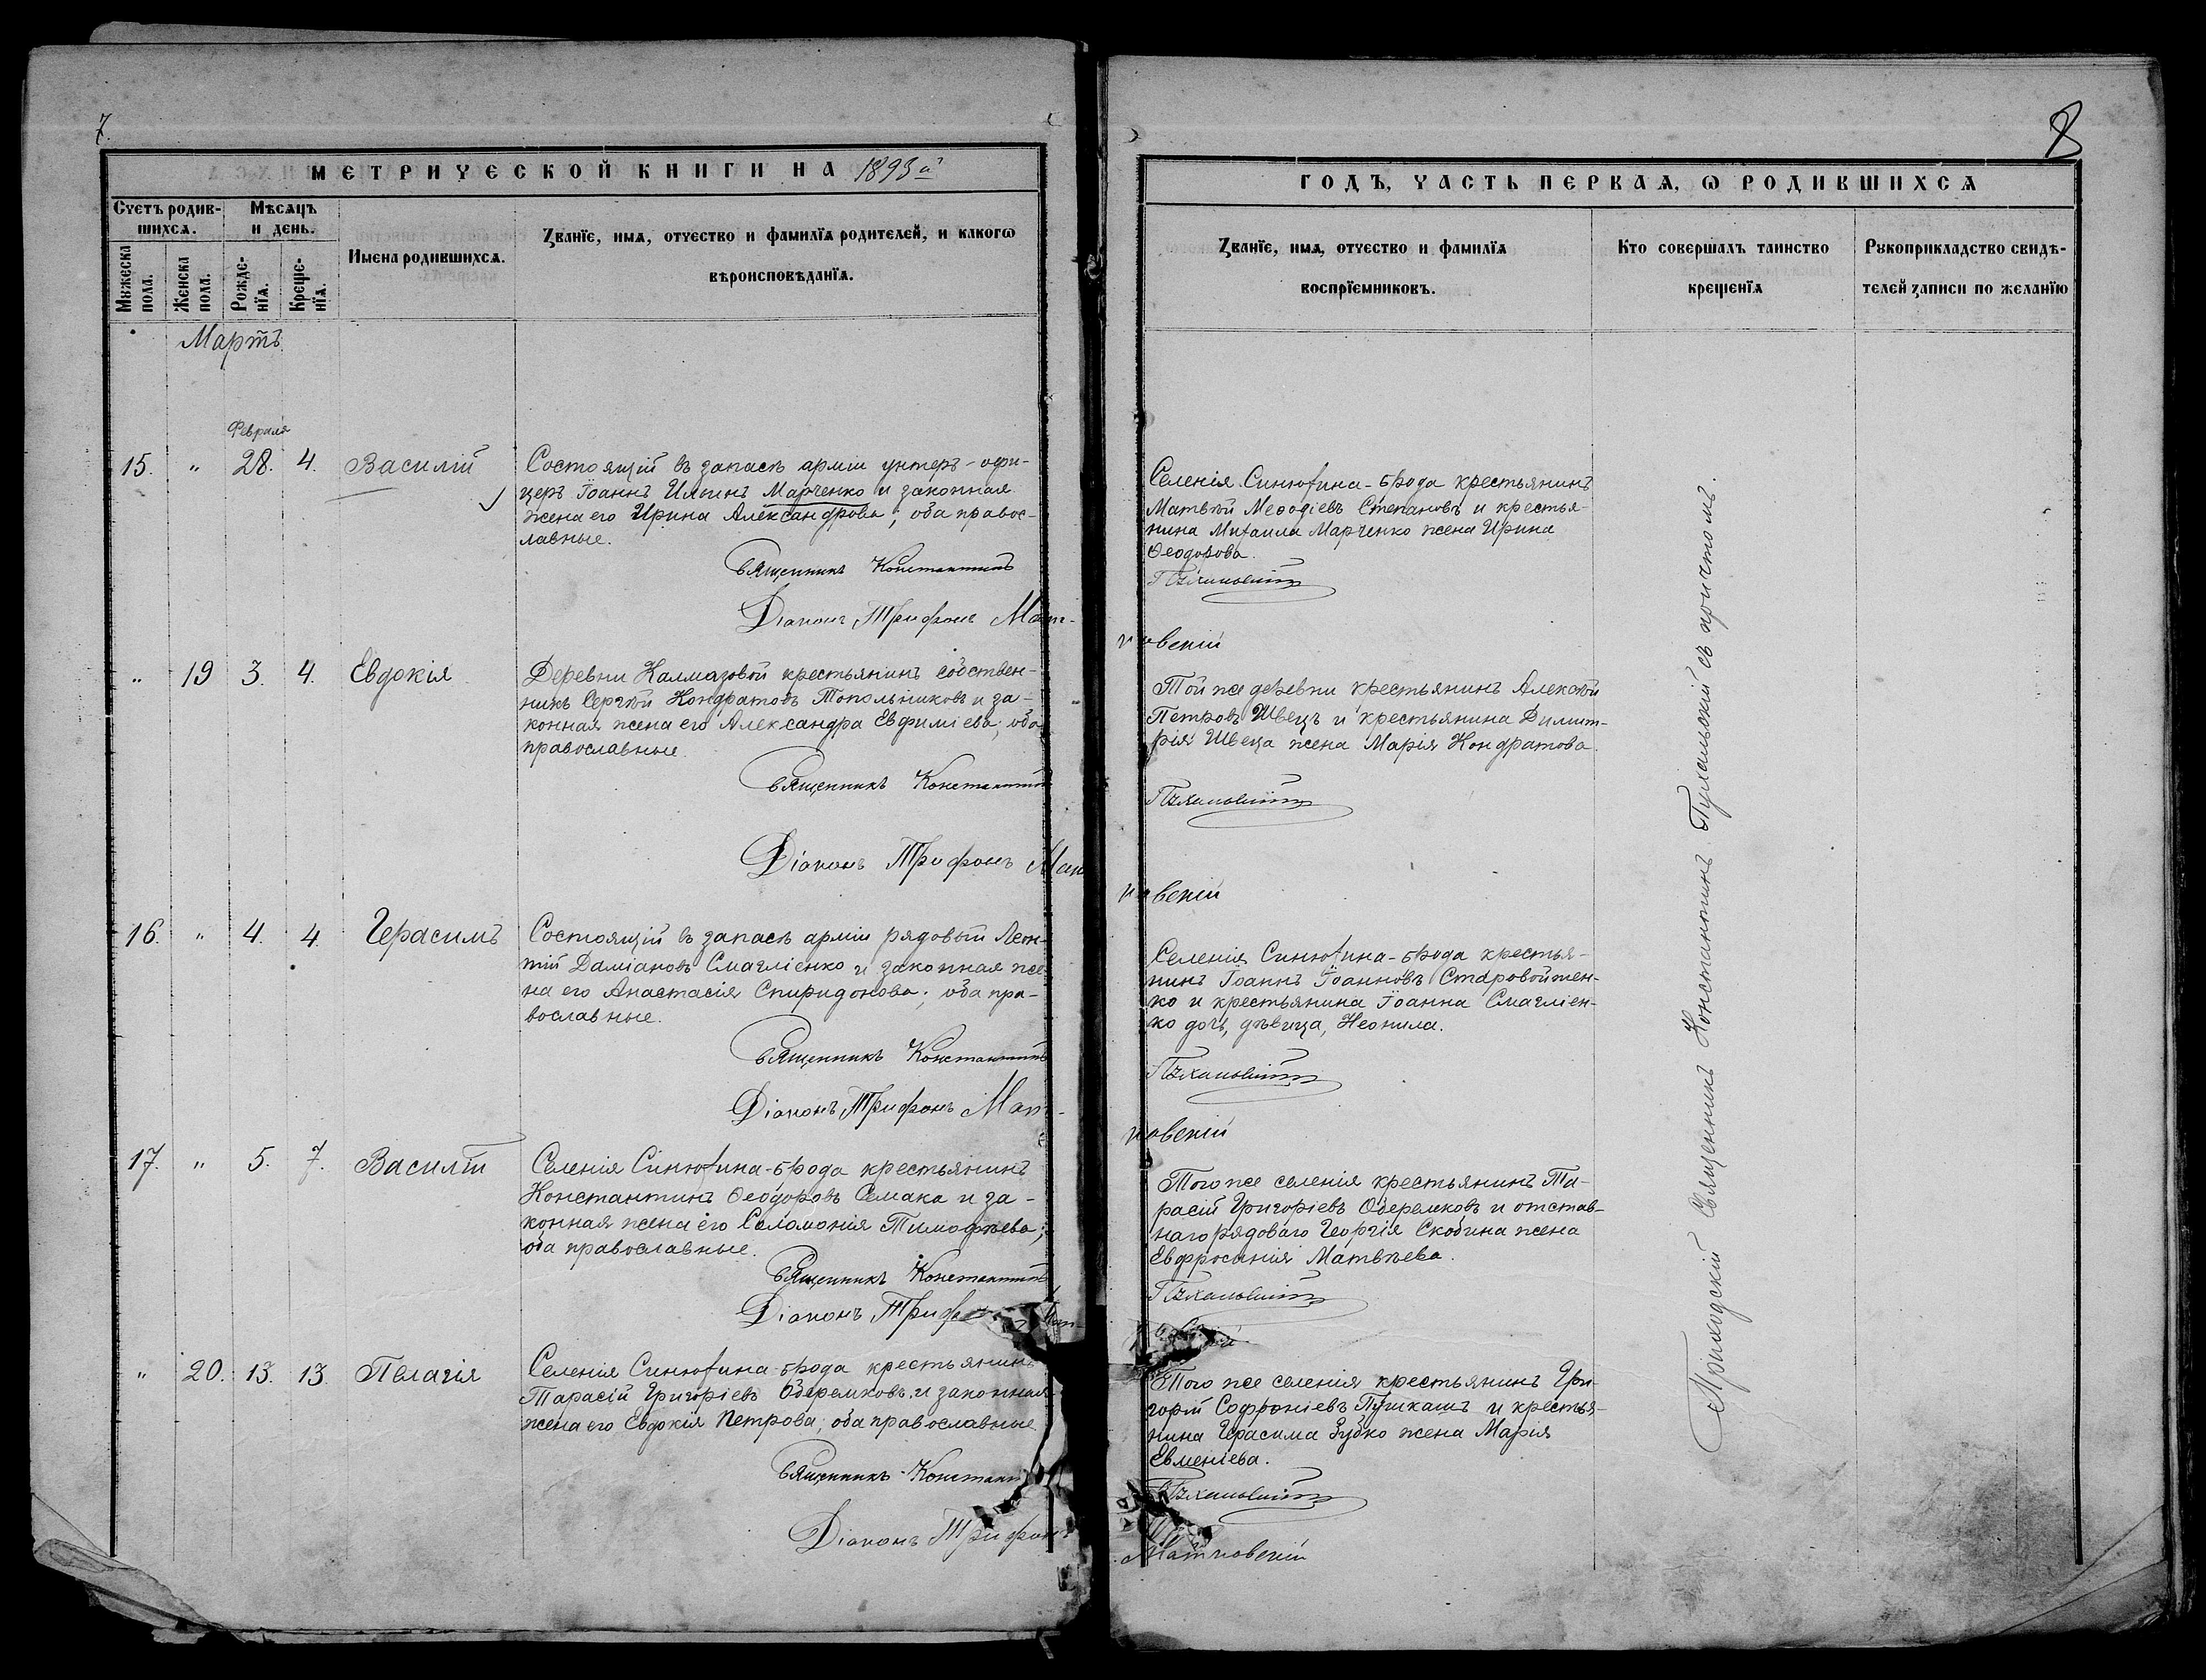 7.
МЕТРИЧЕСКОЙ КНИГИ НА 1893й
Счетъ родив-
шихся.
Мѣсяцъ
и день.
Имена родившихся.
Званїе, имя, отчество и фамилїя родителей, и какогѡ
вѣроисповѣданїя.
Мꙋжеска
пола.
Женска
пола.
Рожде-
нїя.
Креще-
нїя.
Мартъ
Февраля
15. " 28. 4. Василій
Состоящій въ запасѣ арміи унтеръ-офи-
церъ Іоаннъ Ильинъ Марченко и законная
жена его Ирина Александрова; оба правос-
лавные.
Священникъ Константинъ
Діаконъ Трифонъ Мат-
" 19 3. 4. Евдокія
Деревни Калмазовой крестьянинъ собствен-
никъ Сергѣй Кондратовъ Топольниковъ и за-
конная жена его Александра Евфиміева; оба
православные
Священникъ Константинъ
Діаконъ Трифонъ Мат
16. " 4. 4. Герасимъ
Состоящій въ запасѣ арміи рядовый Леон-
тій Даміановъ Смагліенко и законная же-
на его Анастасія Спиридонова; оба пра-
вославные.
Священникъ Константинъ
Діаконъ Трифонъ Мат-
17. " 5. 7. Василій
Селенія Синюхина-брода крестьянинъ
Константинъ Ѳеодоровъ Семака и за-
конная жена его Соломонія Тимофѣева;
оба православные.
Священникъ Константинъ
Діаконъ Трифо
" 20. 13. 13. Пелагія
Селенія Синюхина-брода крестьянинъ
Тарасій Григоріевъ Одеремковъ и законная
жена его Евдокія Петрова; оба православные
Священникъ Констант
Діаконъ Трифонъ
8
ГОДЪ, ЧАСТЬ ПЕРВАЯ, Ѡ РОДИВШИХСЯ
Званїе, имя, отчество и фамилїя
воспрїемниковъ.
Кто совершалъ таинство
крещенїя
Рꙋкоприкладство свидѣ-
телей записи по желанїю
Селенія Синюхина-брода крестьянинъ
Матвѣй Меѳодіевъ Степановъ и крестья-
нина Михаила Марченко жена Ирина
Ѳеодорова.
Пухальскій
ковскій
Той же деревни крестьянинъ Алексѣй
Петровъ Швецъ и крестьянина Димит-
рія Швеца жена Марія Кондратова
Пухальскій
ковскій
Селенія Синюхина-брода крестья-
нинъ Іоаннъ Іоанновъ Старовойтен-
ко и крестьянина Іоанна Смагліен-
ко дочь, дѣвица, Неонила.
Пухальскій
ковскій
Того же селенія крестьянинъ Та-
расій Григоріевъ Одеремковъ и отстав-
наго рядоваго Георгія Скобина жена
Евфросинія Матвѣева.
Пухальскій
Того же селенія крестьянинъ Гри-
горій Софроніевъ Пушкашъ и крестья-
нина Герасима Зубко жена Марія
Евменіева.
Пухальскій
Матковскій
Приходскій Священникъ Константинъ Пухальскій съ причтомъ.